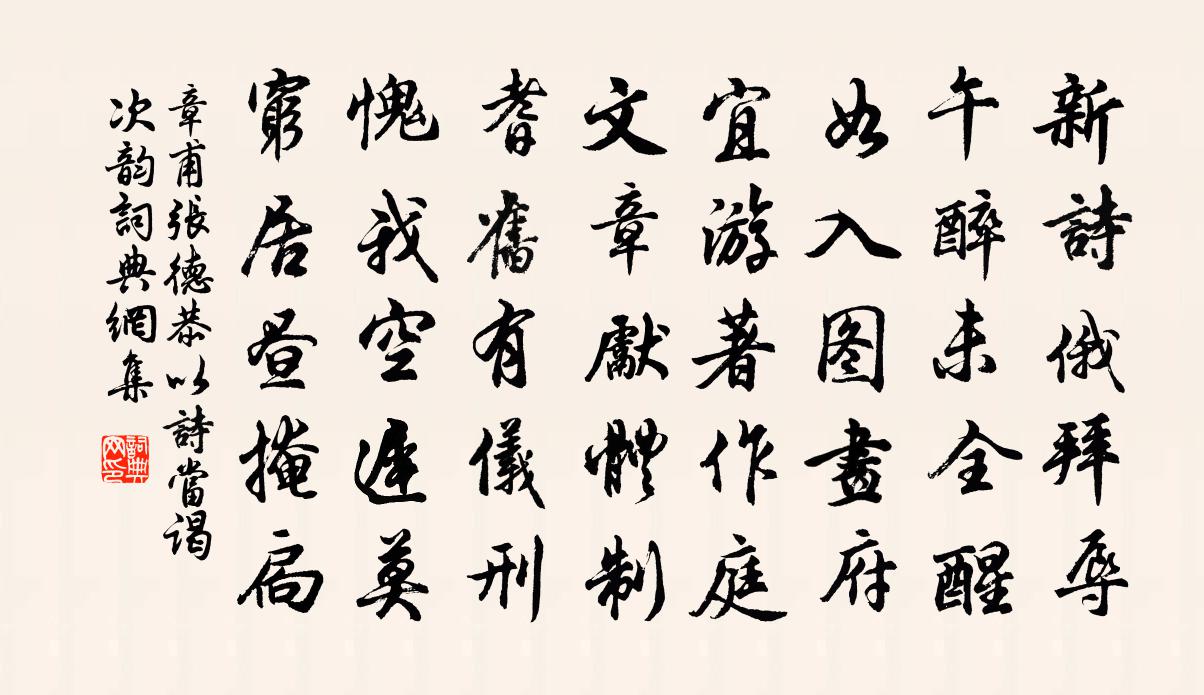 新詩俄拜辱
午醉未全醒
如入图畫府
宜游著作庭
文章獻體制
耆舊有儀刑
愧我空遲莫
窮居昼掩扃
章甫張德恭以詩當谒
次韵詞典網集
詞典
网印